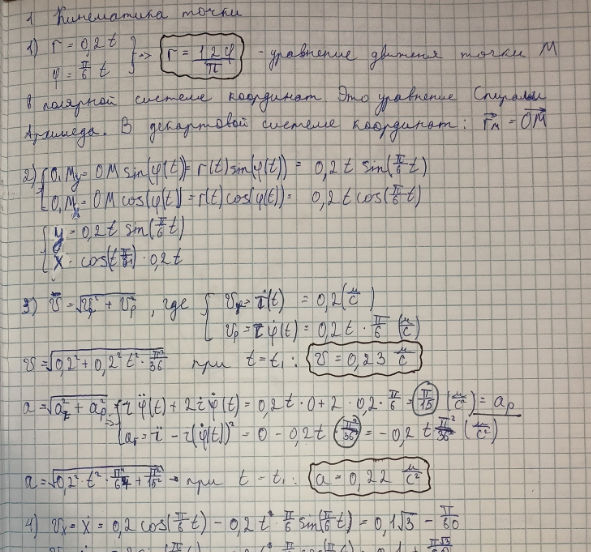 1 Кинематика точки
1) r = 0,2 t
φ = π/6 t } => r = 1,2φ/π - уравнение движения точки М
в полярной системе координат. Это уравнение Спирали
Архимеда. В декартовой системе координат: r⃗м = OM⃗
2) { O,My = OM sin(φ(t)) = r(t) sin(φ(t)) = 0,2 t sin(π/6 t)
O,Mx = OM cos(φ(t)) = r(t) cos(φ(t)) = 0,2 t cos(π/6 t)
{ y = 0,2 t sin(π/6 t)
x = cos(t π/6) · 0,2t
3) v = √(vr² + vp²), где { vr = ṙ(t) = 0,2 (м/с)
vp = r φ̇(t) = 0,2 t · π/6 (м/с)
v = √(0,2² + 0,2² t² · π²/36) при t = t₁: v = 0,23 м/с
a = √(ar² + ap²) => { r φ̈(t) + 2ṙ φ̇(t) = 0,2 t · 0 + 2 · 0,2 · π/6 = π/15 (м/с²) = ap
ar = r̈ - r(φ̇(t))² = 0 - 0,2 t π²/36 = - 0,2 t π²/36 (м/с²)
a = √(0,2² · t² · π⁴/6⁴ + π²/15²) при t = t₁: a = 0,22 м/с²
4) vx = ẋ = 0,2 cos(π/6 t) - 0,2 t · π/6 sin(π/6 t) = 0,1√3 - π/60